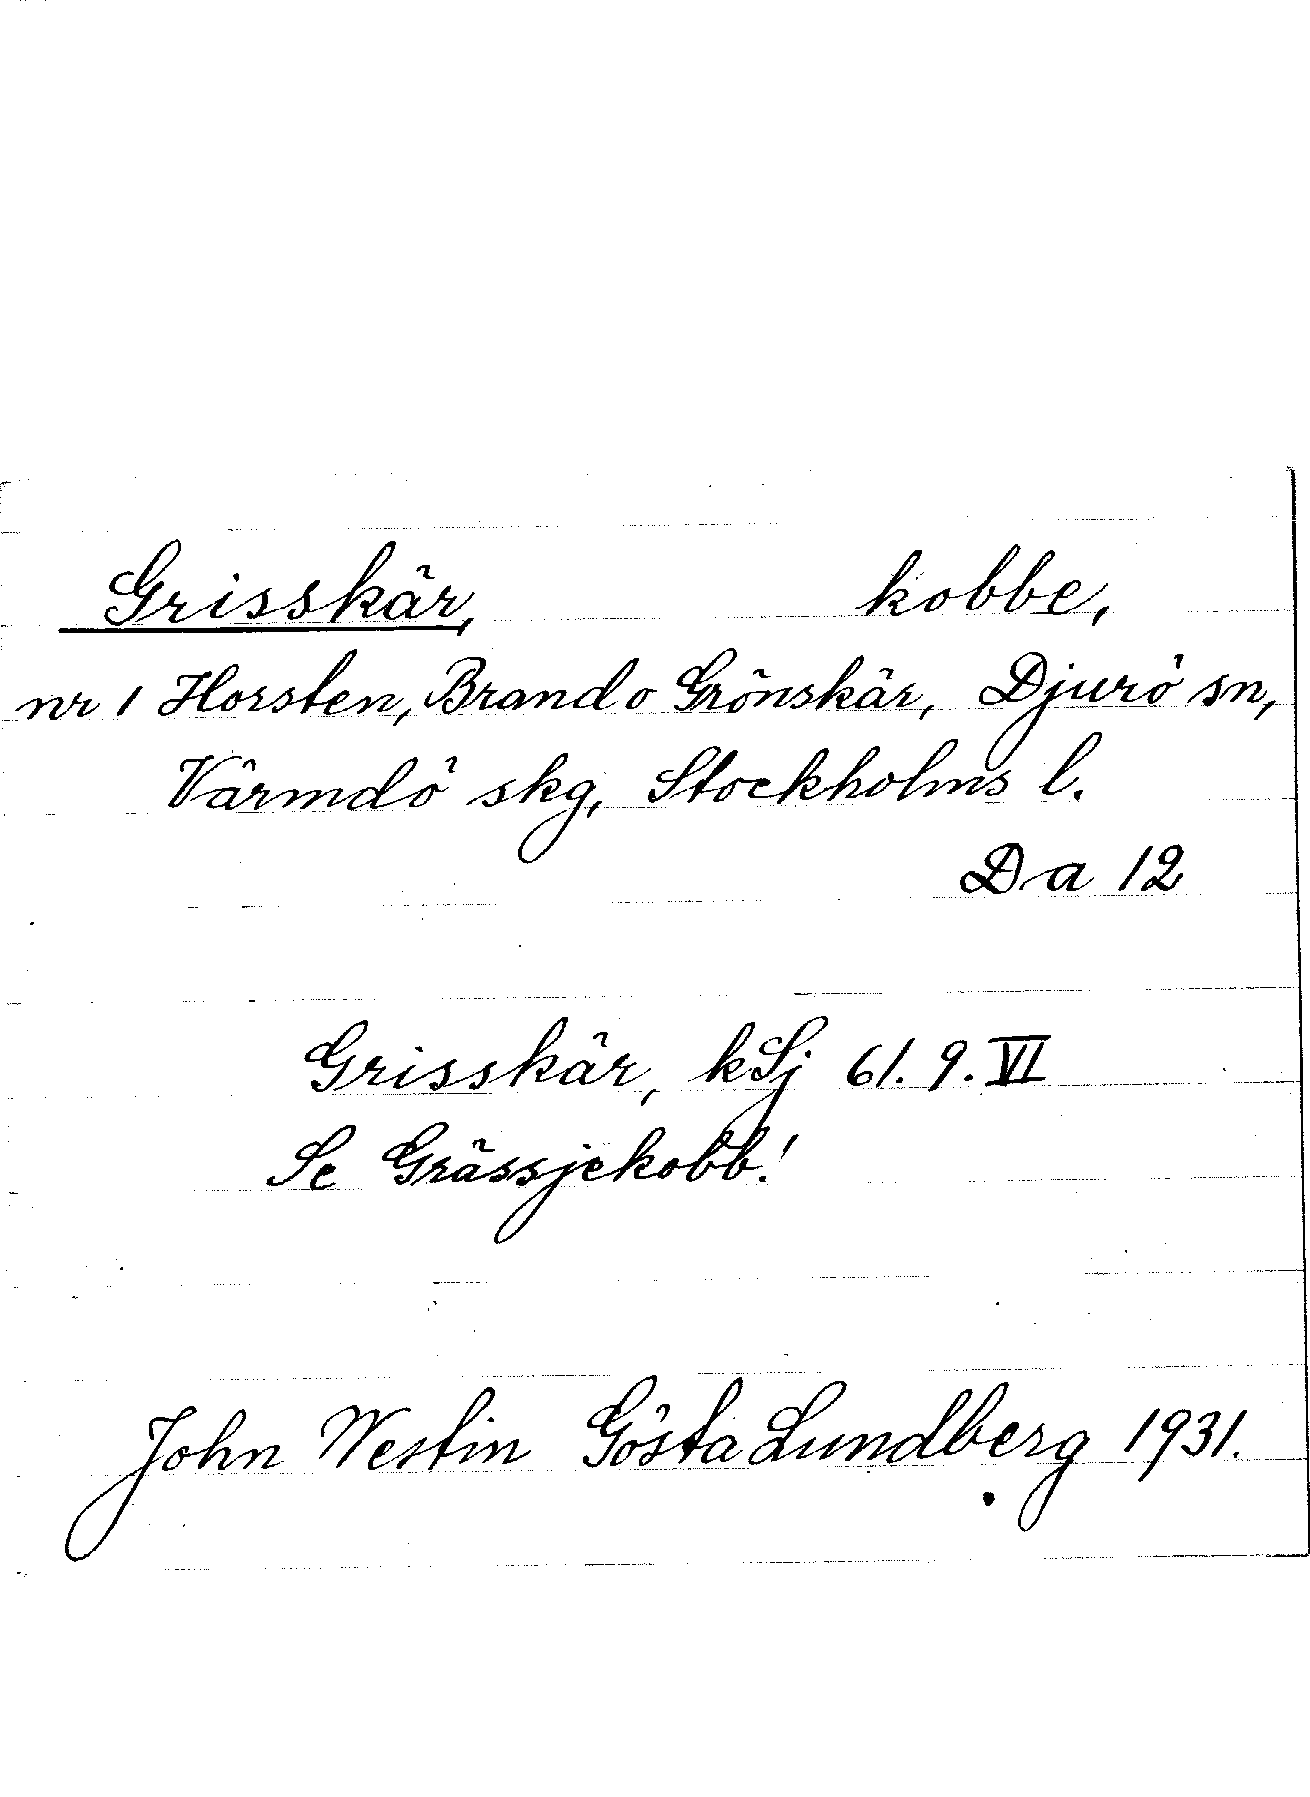 Grisskär, kobbe,
nr 1 Horsten, Brand o Grönskär, Djurö sn,
Värmdö skg, Stockholms l.
Da 12
Grisskär, kSj 61. 9. VI
Se Grässjekobb!
John Westin Gösta Lundberg 1931.